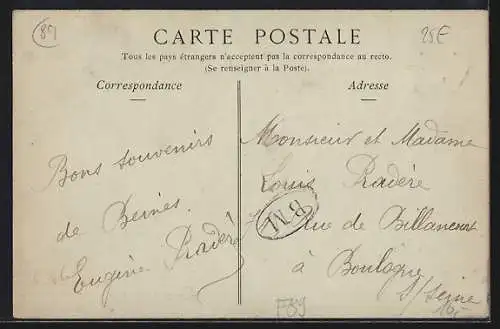 89
25€
CARTE POSTALE
Tous les pays étrangers n'acceptent pas la correspondance au recto.
(Se renseigner à la Poste).
Correspondance
Adresse
Bons souvenirs
de Beines
Eugène Pradère
Monsieur et Madame
Louis Pradère
rue de Billancourt
à Boulogne
s/Seine
BM
F89